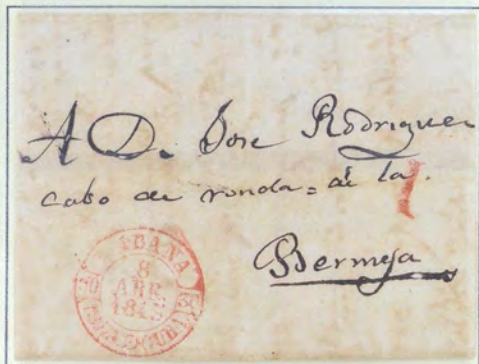 A D. Jose Rodriguez
cabo de ronda = de la
Bermeja
HABANA
8
ABR